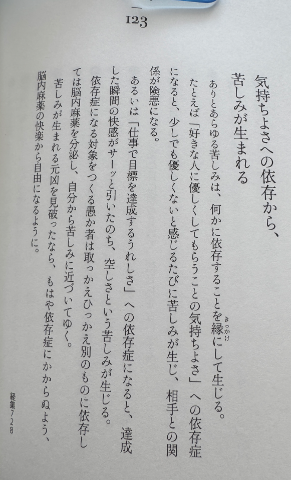 123
気持ちよさへの依存から、
苦しみが生まれる
ありとあらゆる苦しみは、何かに依存することを縁にして生じる。
きっかけ
たとえば「好きな人に優しくしてもらうことの気持ちよさ」への依存症
になると、少しでも優しくないと感じるたびに苦しみが生じ、相手との関
係が険悪になる。
あるいは「仕事で目標を達成するうれしさ」への依存症になると、達成
した瞬間の快感がサーッと引いたのち、空しさという苦しみが生じる。
依存症になる対象をつくる愚か者は取っかえひっかえ別のものに依存し
ては脳内麻薬を分泌し、自分から苦しみに近づいてゆく。
苦しみが生まれる元凶を見破ったなら、もはや依存症にかからぬよう、
脳内麻薬の快楽から自由になるように。
経集728